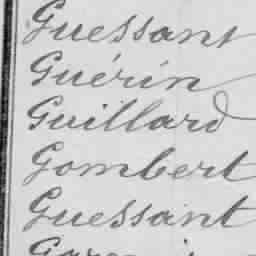 Guessant
Guérin
Guillard
Gombert
Guessant